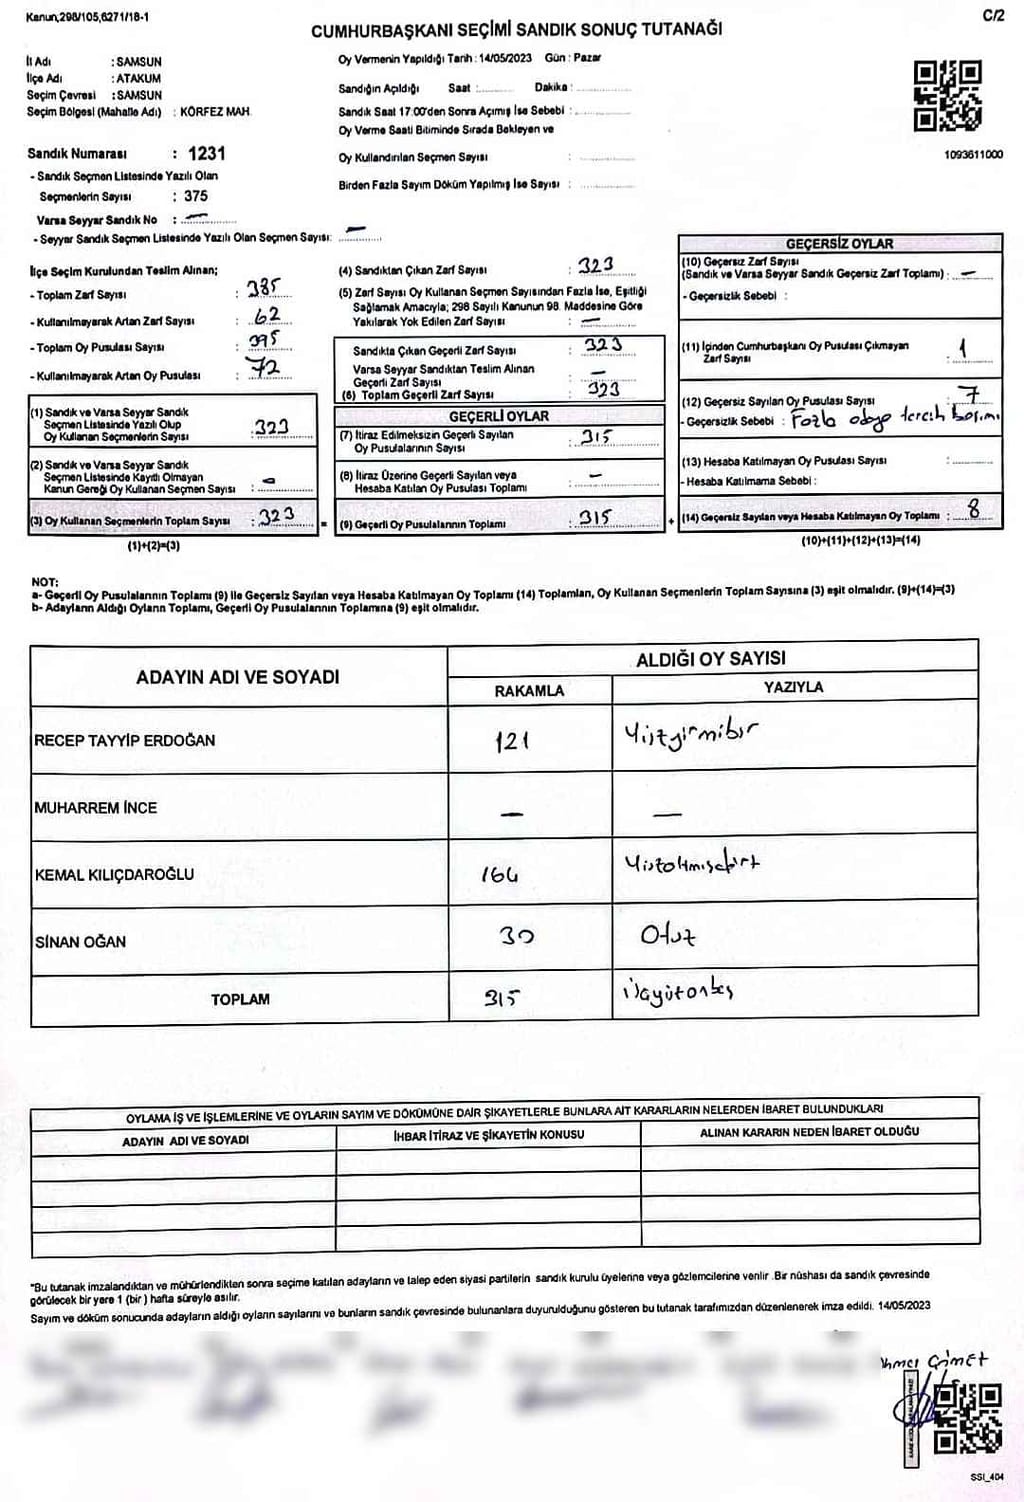 Kanun,298/105,6271/18-1
C/2
CUMHURBAŞKANI SEÇİMİ SANDIK SONUÇ TUTANAĞI
İl Adı : SAMSUN
İlçe Adı : ATAKUM
Seçim Çevresi : SAMSUN
Seçim Bölgesi (Mahalle Adı) : KÖRFEZ MAH.
Sandık Numarası : 1231
- Sandık Seçmen Listesinde Yazılı Olan
Seçmenlerin Sayısı : 375
Varsa Seyyar Sandık No : —
- Seyyar Sandık Seçmen Listesinde Yazılı Olan Seçmen Sayısı: —
Oy Vermenin Yapıldığı Tarih : 14/05/2023 Gün : Pazar
Sandığın Açıldığı Saat : Dakika :
Sandık Saat 17.00'den Sonra Açımış İse Sebebi :
Oy Verme Saati Bitiminde Sırada Bekleyen ve
Oy Kullandırılan Seçmen Sayısı :
Birden Fazla Sayım Döküm Yapılmış İse Sayısı :
1093611000
İlçe Seçim Kurulundan Teslim Alınan;
- Toplam Zarf Sayısı : 385
- Kullanılmayarak Artan Zarf Sayısı : 62
- Toplam Oy Pusulası Sayısı : 395
- Kullanılmayarak Artan Oy Pusulası : 72
(1) Sandık ve Varsa Seyyar Sandık
Seçmen Listesinde Yazılı Olup
Oy Kullanan Seçmenlerin Sayısı : 323
(2) Sandık ve Varsa Seyyar Sandık
Seçmen Listesinde Kayıtlı Olmayan
Kanun Gereği Oy Kullanan Seçmen Sayısı : —
(3) Oy Kullanan Seçmenlerin Toplam Sayısı : 323
(1)+(2)=(3)
(4) Sandıktan Çıkan Zarf Sayısı : 323
(5) Zarf Sayısı Oy Kullanan Seçmen Sayısından Fazla İse, Eşitliği
Sağlamak Amacıyla; 298 Sayılı Kanunun 98. Maddesine Göre
Yakılarak Yok Edilen Zarf Sayısı : —
Sandıkta Çıkan Geçerli Zarf Sayısı : 323
Varsa Seyyar Sandıktan Teslim Alınan
Geçerli Zarf Sayısı : —
(6) Toplam Geçerli Zarf Sayısı : 323
GEÇERLİ OYLAR
(7) İtiraz Edilmeksizin Geçerli Sayılan
Oy Pusulalarının Sayısı : 315
(8) İtiraz Üzerine Geçerli Sayılan veya
Hesaba Katılan Oy Pusulası Toplamı : —
= (9) Geçerli Oy Pusulalarının Toplamı : 315
GEÇERSİZ OYLAR
(10) Geçersiz Zarf Sayısı
(Sandık ve Varsa Seyyar Sandık Geçersiz Zarf Toplamı) : —
- Geçersizlik Sebebi :
(11) İçinden Cumhurbaşkanı Oy Pusulası Çıkmayan
Zarf Sayısı : 1
(12) Geçersiz Sayılan Oy Pusulası Sayısı : 7
- Geçersizlik Sebebi : Fazla adaya tercih basımı
(13) Hesaba Katılmayan Oy Pusulası Sayısı :
- Hesaba Katılmama Sebebi :
+ (14) Geçersiz Sayılan veya Hesaba Katılmayan Oy Toplamı : 8
(10)+(11)+(12)+(13)=(14)
NOT:
a- Geçerli Oy Pusulalarının Toplamı (9) ile Geçersiz Sayılan veya Hesaba Katılmayan Oy Toplamı (14) Toplamları, Oy Kullanan Seçmenlerin Toplam Sayısına (3) eşit olmalıdır. (9)+(14)=(3)
b- Adayların Aldığı Oyların Toplamı, Geçerli Oy Pusulalarının Toplamına (9) eşit olmalıdır.
ADAYIN ADI VE SOYADI
ALDIĞI OY SAYISI
RAKAMLA YAZIYLA
RECEP TAYYİP ERDOĞAN 121 Yüzyirmibir
MUHARREM İNCE — —
KEMAL KILIÇDAROĞLU 164 Yüzaltmışdört
SİNAN OĞAN 30 Otuz
TOPLAM 315 Üçyüzonbeş
OYLAMA İŞ VE İŞLEMLERİNE VE OYLARIN SAYIM VE DÖKÜMÜNE DAİR ŞİKAYETLERLE BUNLARA AİT KARARLARIN NELERDEN İBARET BULUNDUKLARI
ADAYIN ADI VE SOYADI İHBAR İTİRAZ VE ŞİKAYETİN KONUSU ALINAN KARARIN NEDEN İBARET OLDUĞU
"Bu tutanak imzalandıktan ve mühürlendikten sonra seçime katılan adayların ve talep eden siyasi partilerin sandık kurulu üyelerine veya gözlemcilerine verilir .Bir nüshası da sandık çevresinde
görülecek bir yere 1 (bir ) hafta süreyle asılır.
Sayım ve döküm sonucunda adayların aldığı oyların sayılarını ve bunların sandık çevresinde bulunanlara duyurulduğunu gösteren bu tutanak tarafımızdan düzenlenerek imza edildi. 14/05/2023
SSI_404